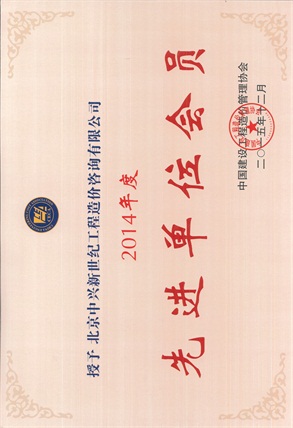 授予 北京中兴新世纪工程造价咨询有限公司
2014年度
先进单位会员
中国建设工程造价管理协会
二〇一五年十二月